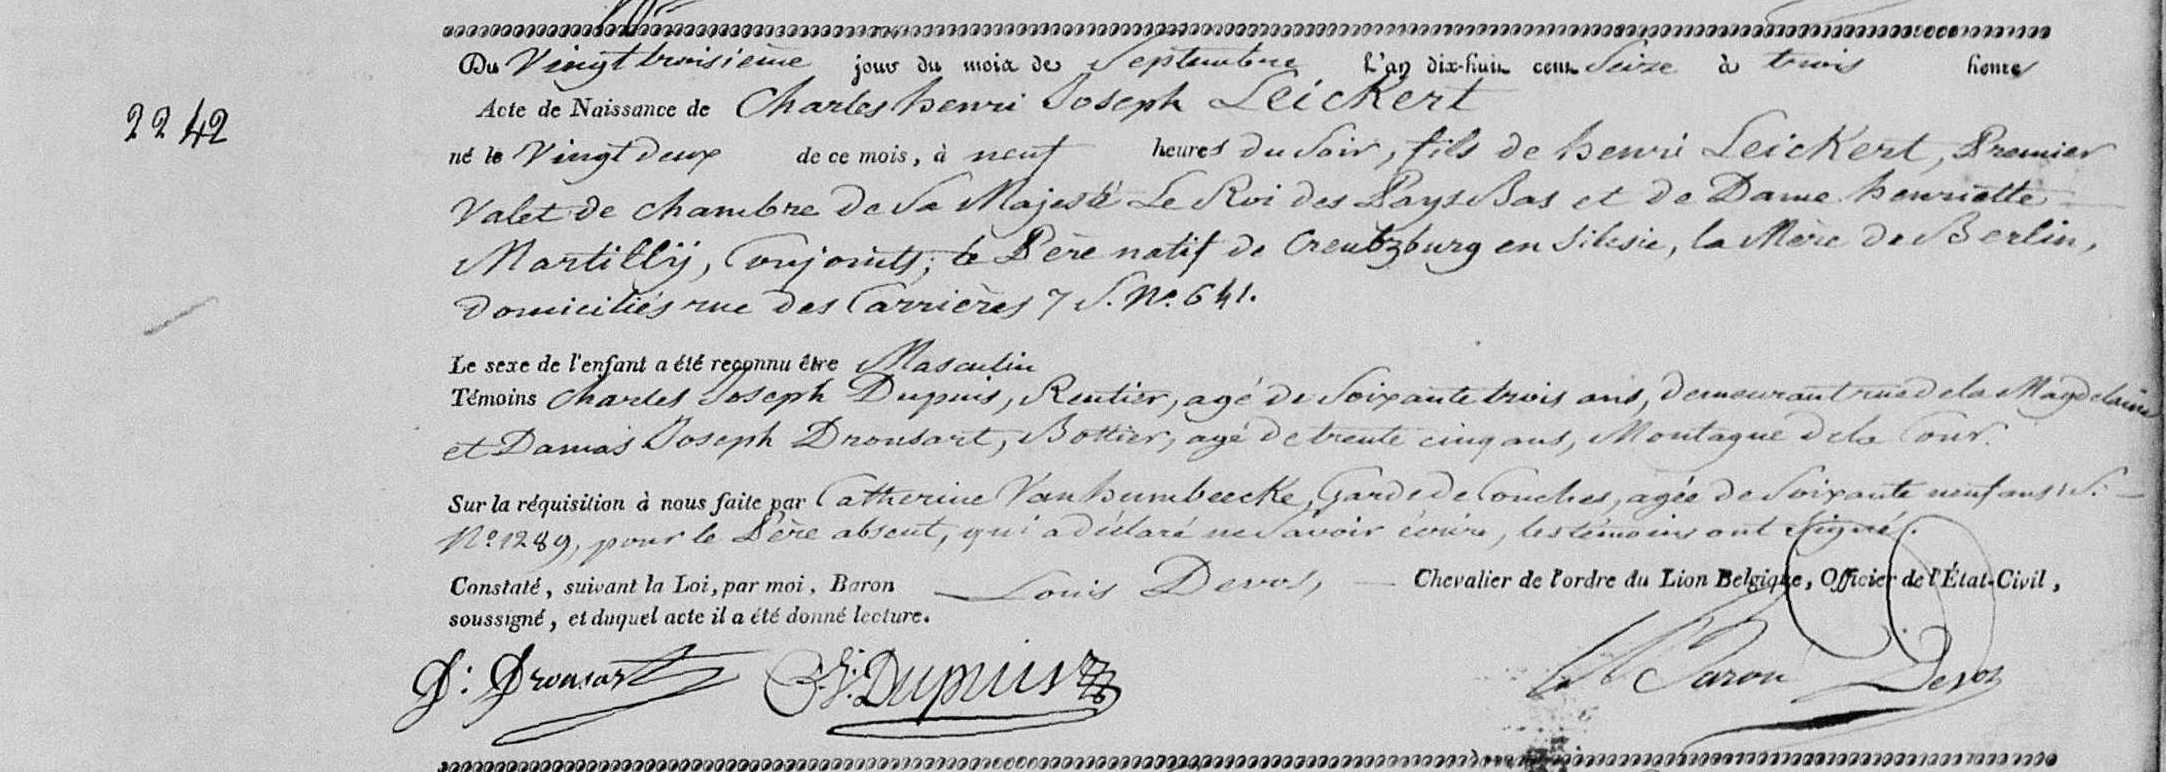 Du Vingt troisième jour du mois de Septembre l'an dix-huit cent Seize à trois heures
2242
Acte de Naissance de Charles henri Joseph Leickert
né le Vingt deux de ce mois, à neuf heures du Soir, fils de henri Leickert, Premier
Valet de chambre de Sa Majesté Le Roi des Pays Bas et de Dame henriette
Martilly, Conjoints; le Père natif de Creutzburg en Silesie, la Mère de Berlin,
domiciliés rue des Carrières 7 S. No. 641.
Le sexe de l'enfant a été reconnu être Masculin
Témoins Charles Joseph Dupuis, Rentier, agé de Soixante trois ans, demeurant rue de la Magdelaine
et Damas Joseph Dronsart, Bottier, agé de trente cinq ans, Montagne de la Cour.
Sur la réquisition à nous faite par Catherine Vanhumbeecke, Garde de Couches, agée de Soixante neuf ans, S.
No. 1289, pour le Père absent, qui a déclaré ne Savoir écrire, les témoins ont Signé.
Constaté, suivant la Loi, par moi, Baron Louis Devos, Chevalier de l'ordre du Lion Belgique, Officier de l'État-Civil,
soussigné, et duquel acte il a été donné lecture.
D: Dronsart Dupuis Baron Devos